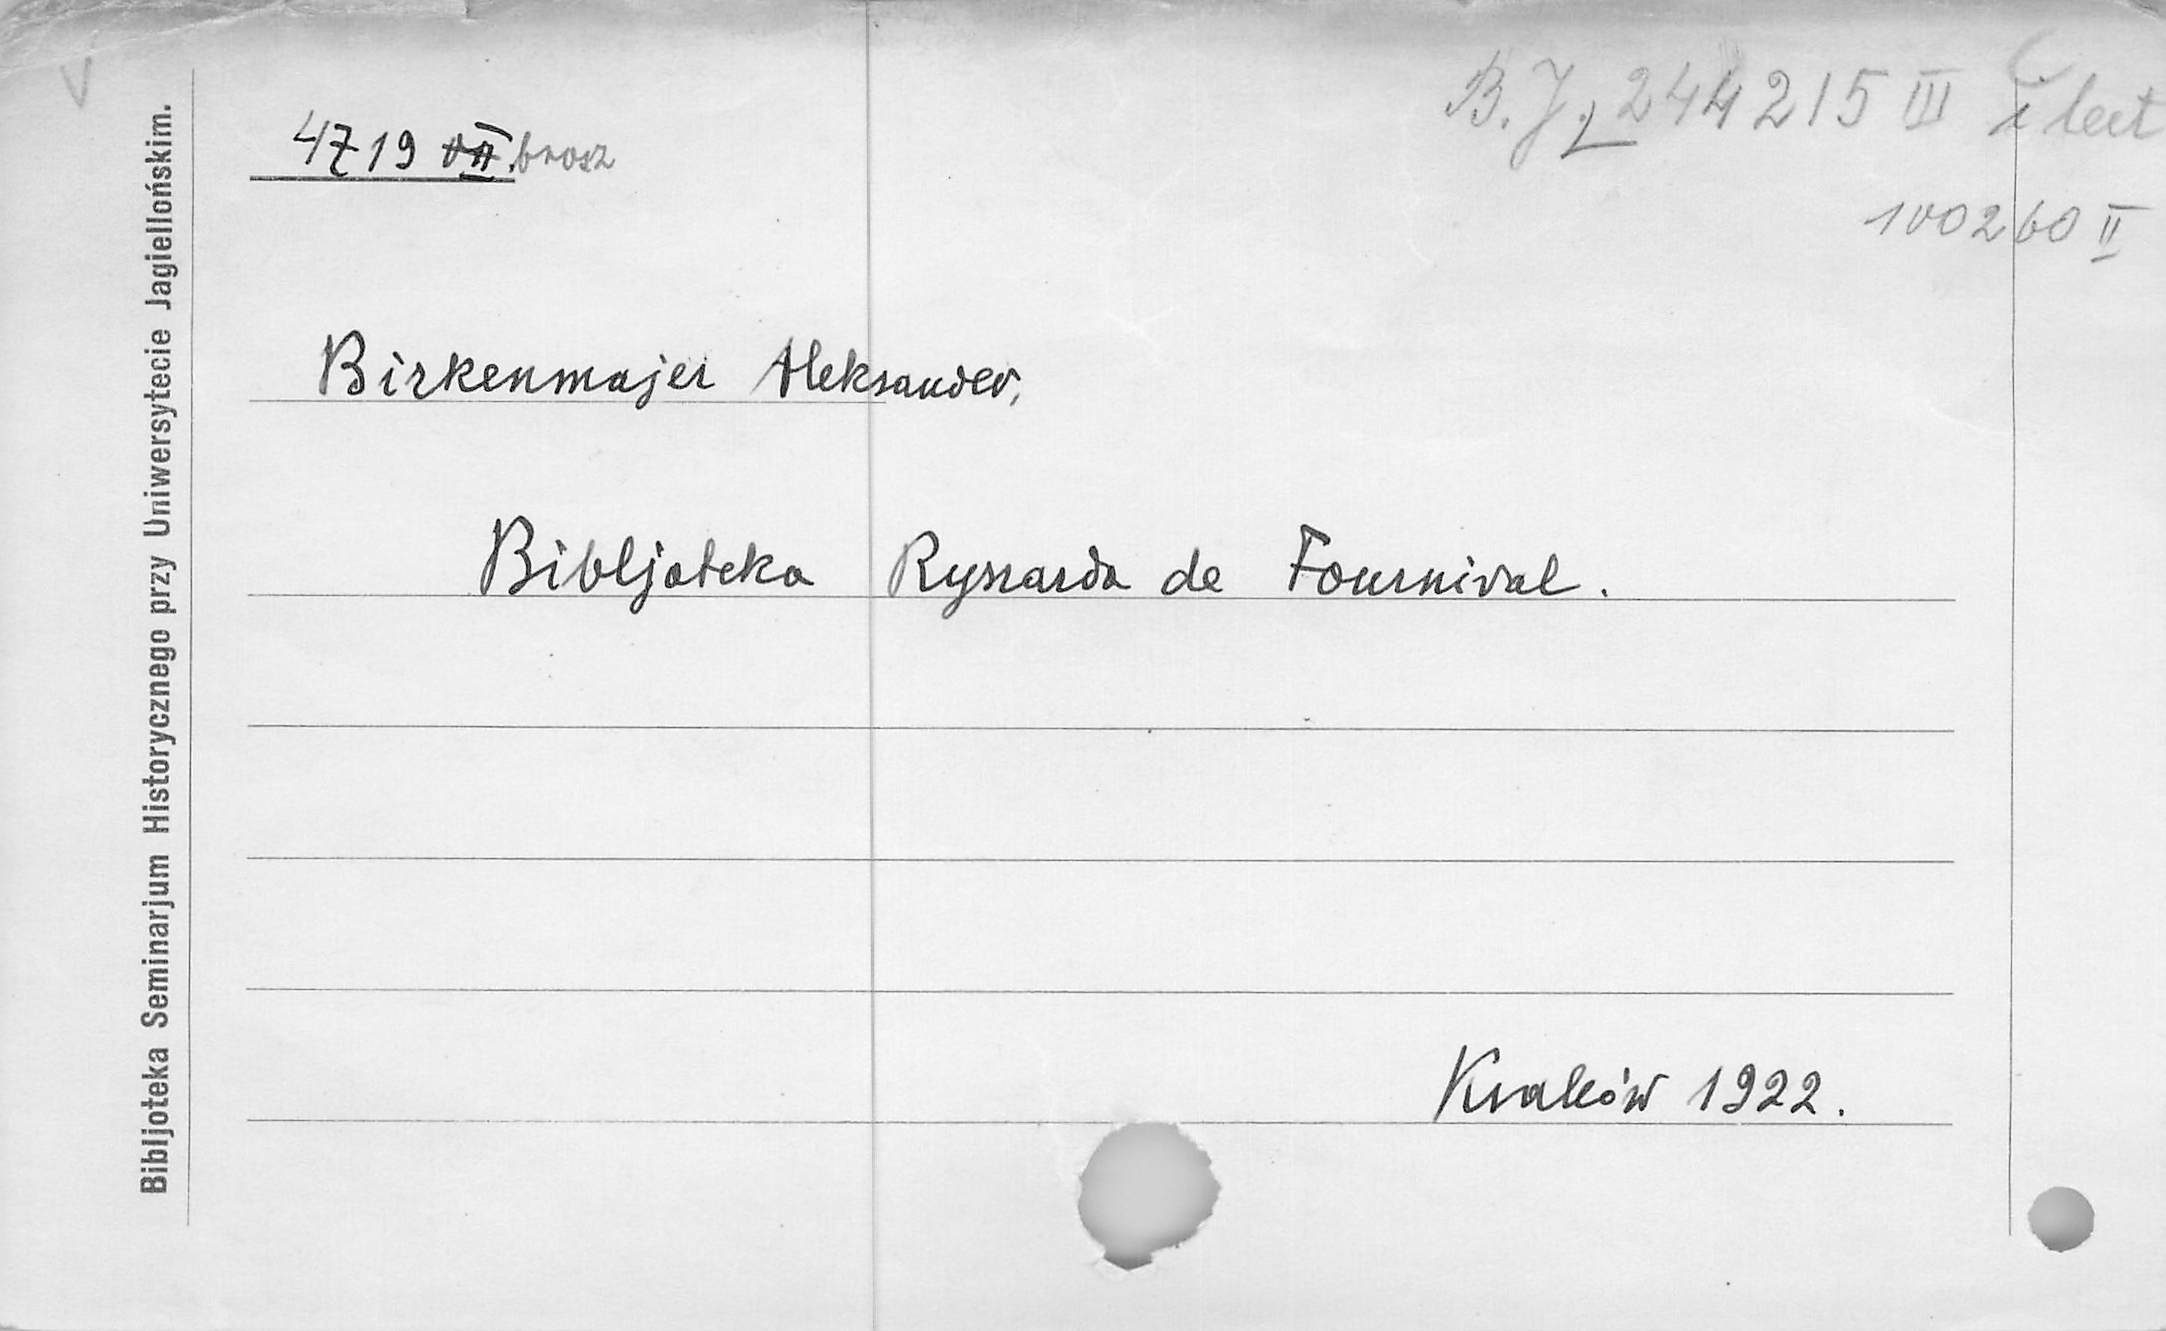 B. J. 244215 III i lect
4719 VII. brosz
100260 II
Birkenmajer Aleksander,
Bibljoteka Ryszarda de Fournival.
Kraków 1922.
Bibljoteka Seminarjum Historycznego przy Uniwersytecie Jagiellońskim.